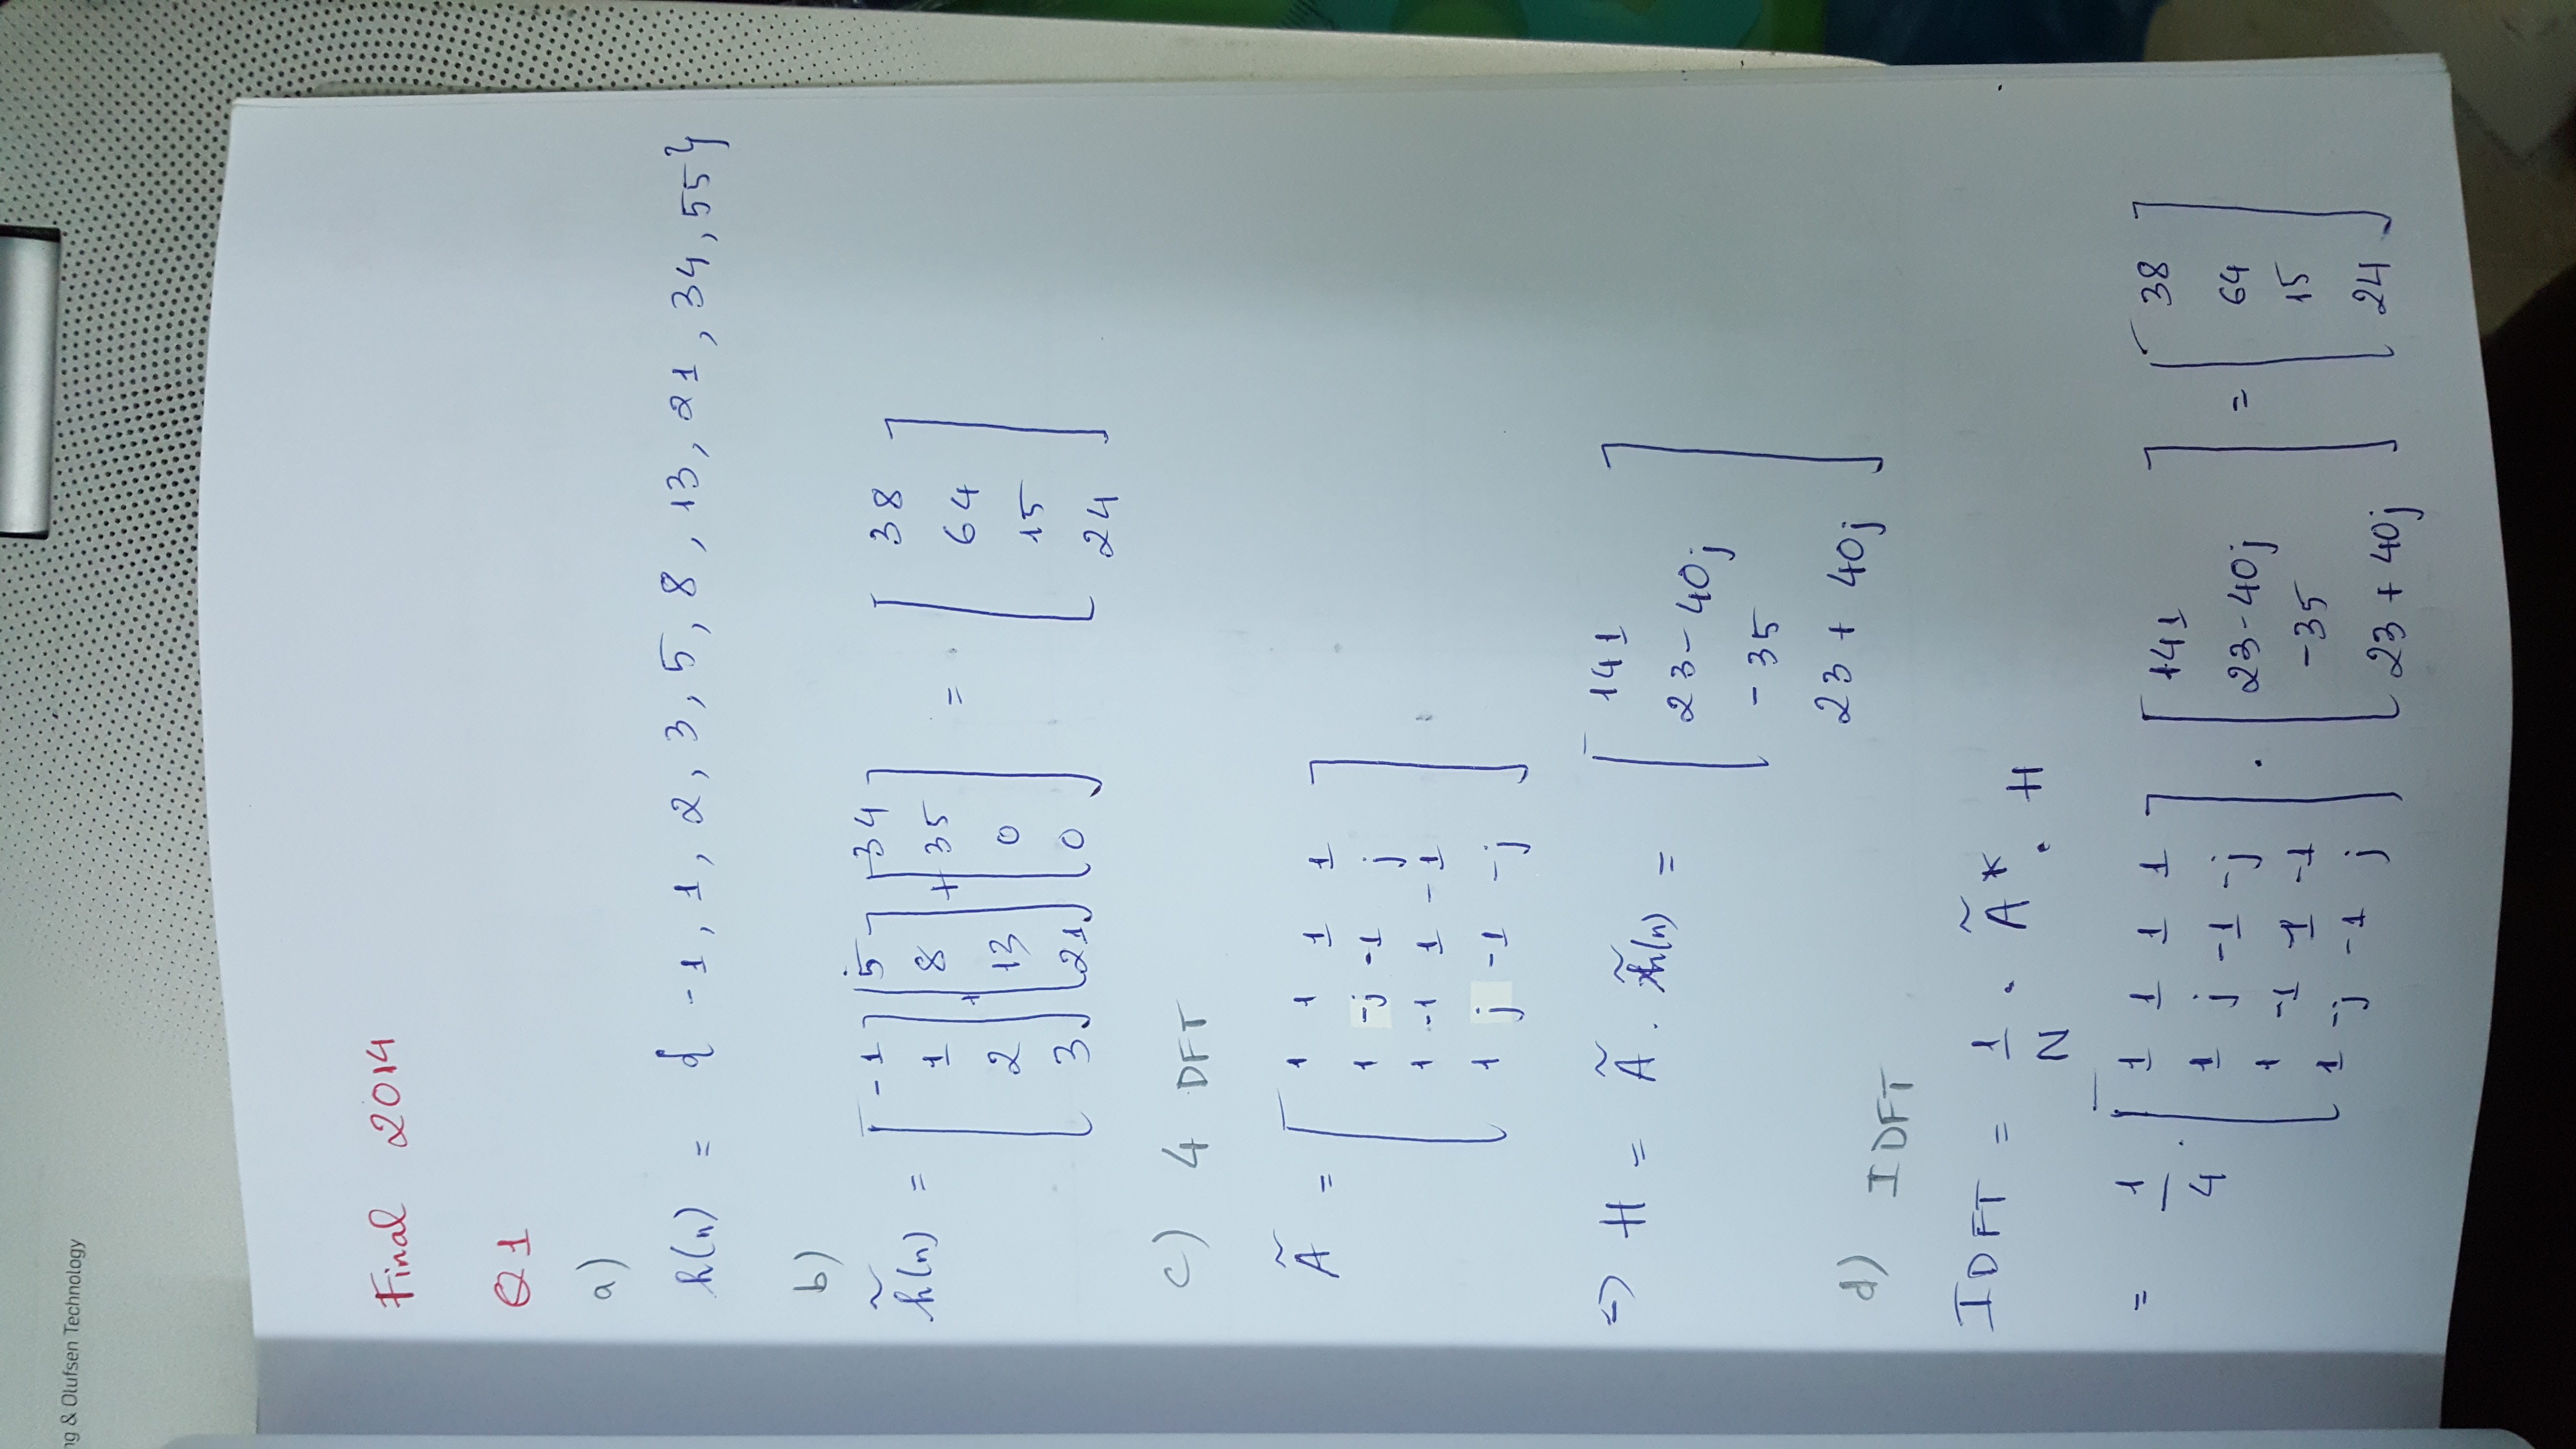 ng & Olufsen Technology
Final 2014
Q1
a)
h(n) = { -1, 1, 2, 3, 5, 8, 13, 21, 34, 55}
b)
h̃(n) = [-1 1 2 3] + [5 8 13 21] + [34 35 0 0] = [38 64 15 24]
c) 4 DFT
Ã = [
1 1 1 1
1 -j -1 j
1 -1 1 -1
1 j -1 -j
]
=> H = Ã . h̃(n) = [
141
23-40j
-35
23 + 40j
]
d) IDFT
IDFT = 1/N . Ã* . H
= 1/4 . [
1 1 1 1
1 j -1 -j
1 -1 1 -1
1 -j -1 j
] . [
141
23-40j
-35
23 + 40j
] = [
38
64
15
24
]